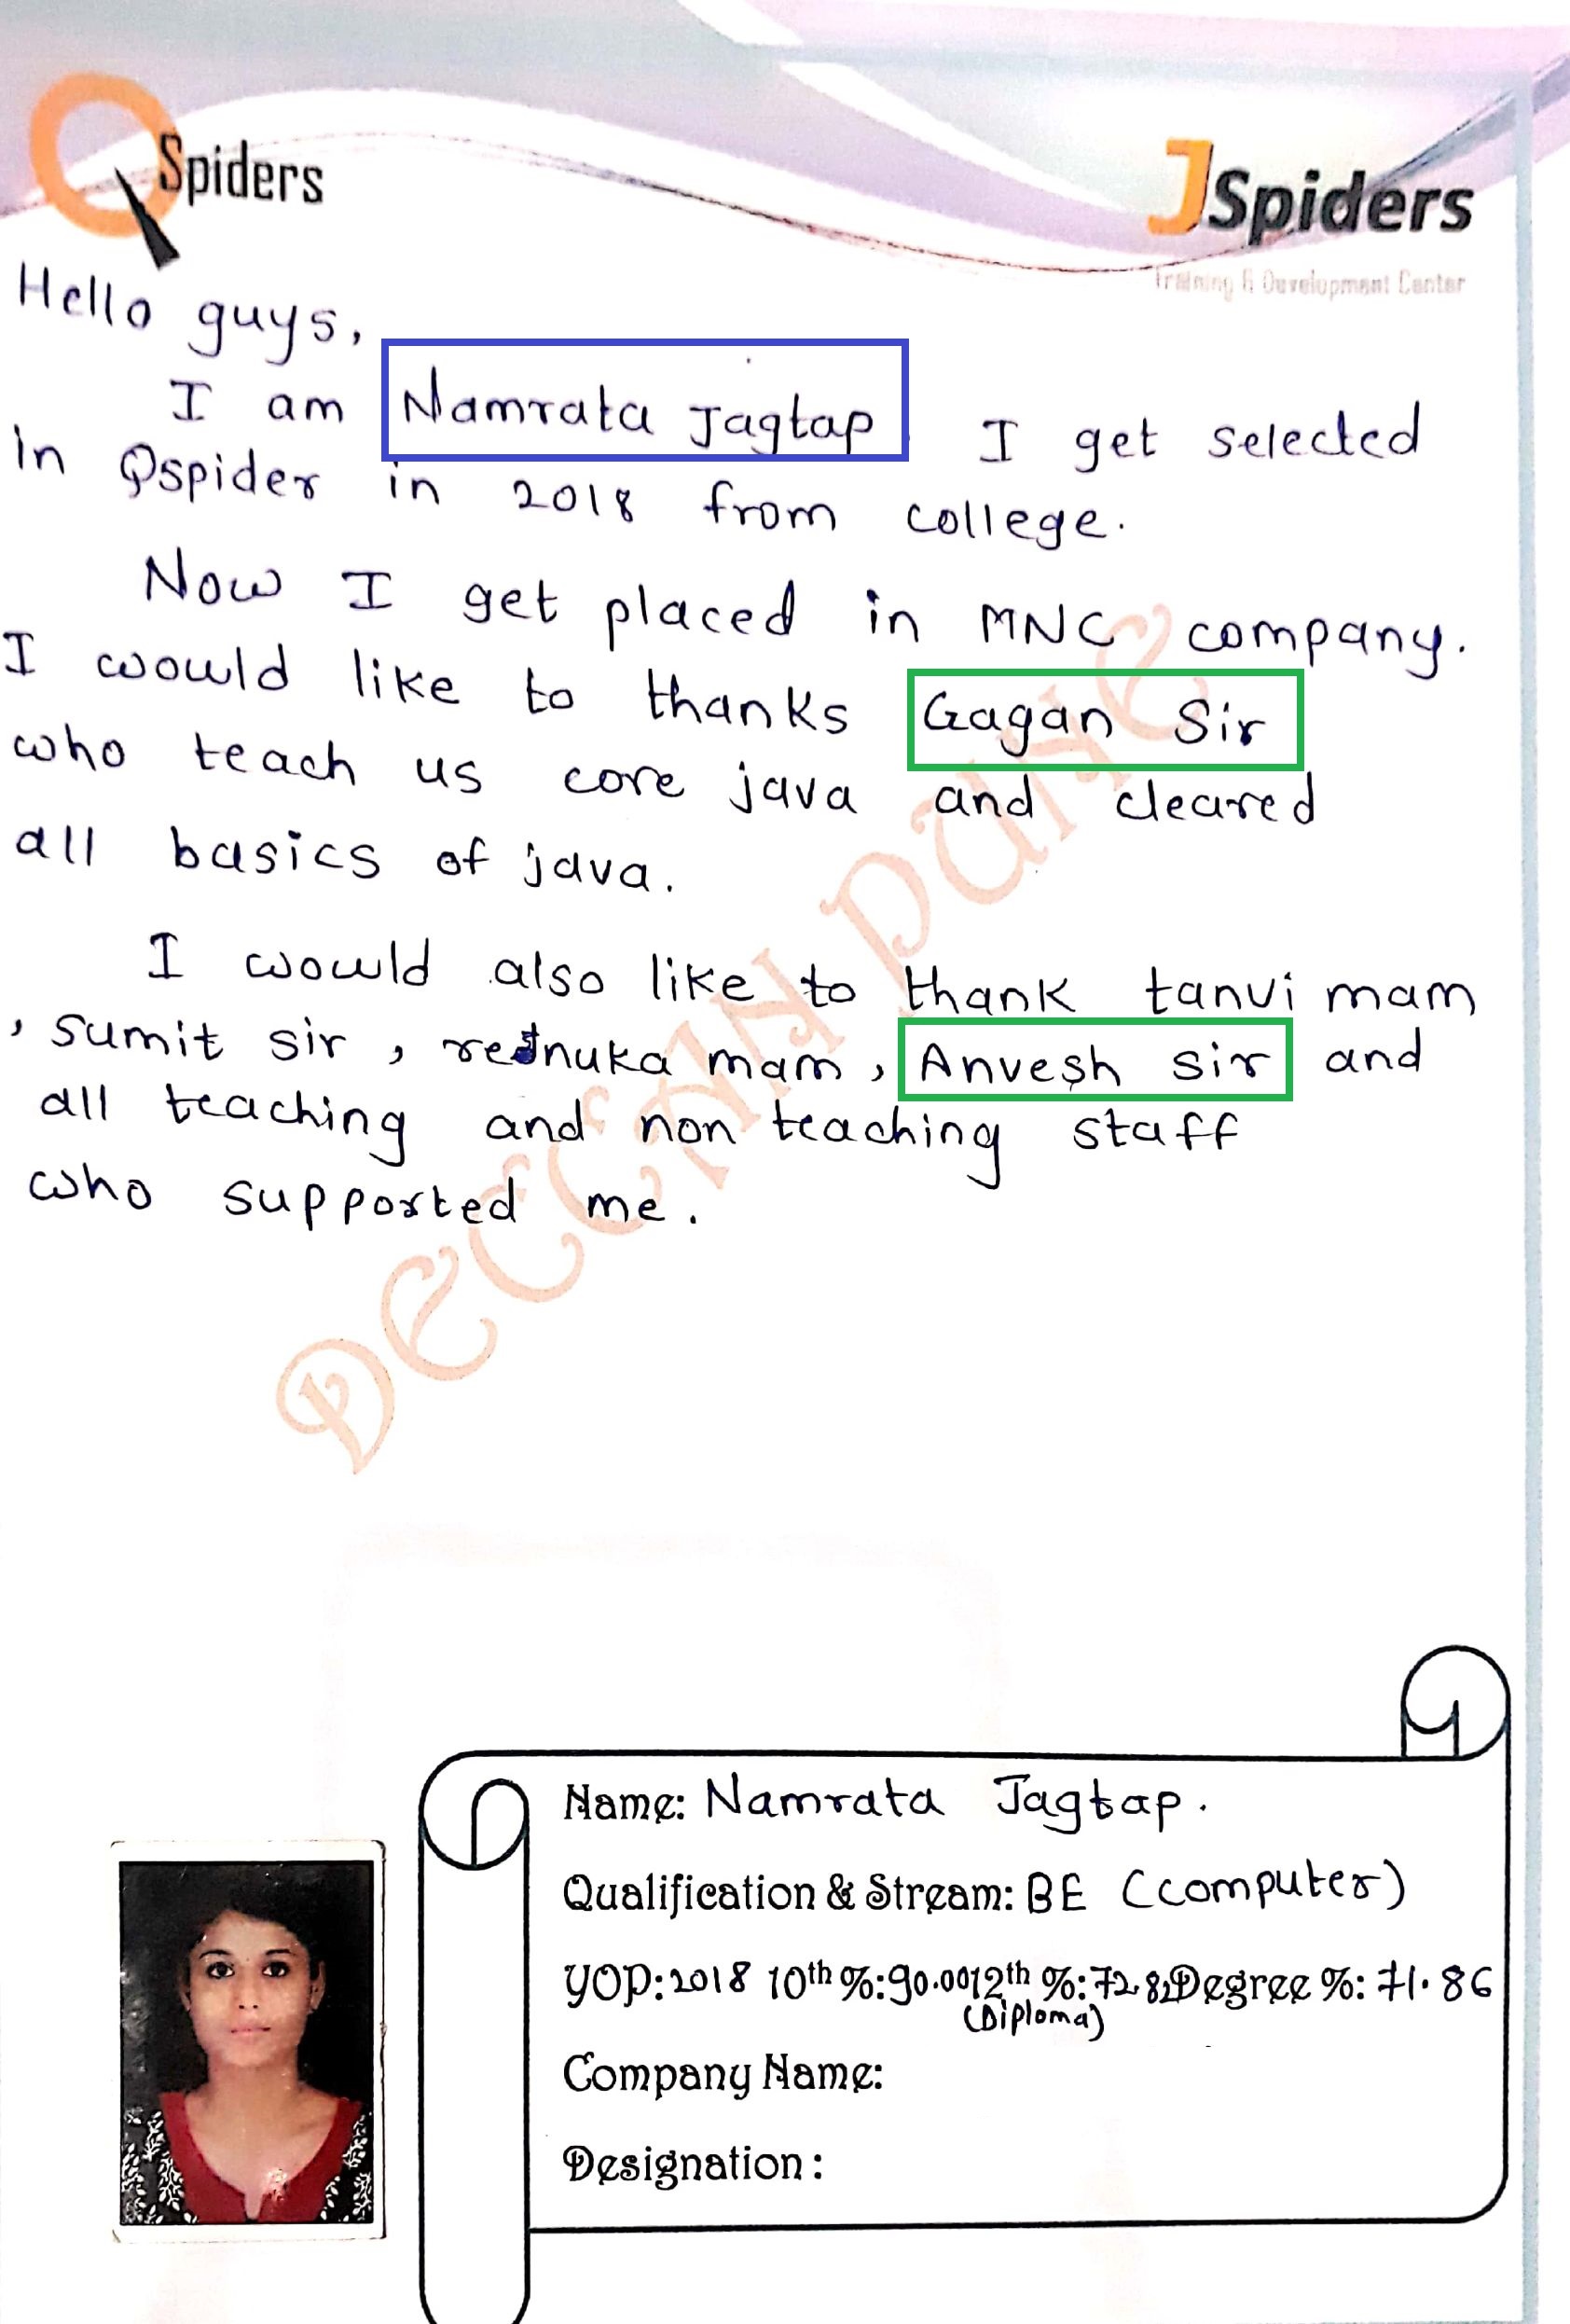 QSpiders
JSpiders
Training & Development Center
Hello guys,
I am Namrata Jagtap. I get selected
in Qspider in 2018 from college.
Now I get placed in MNC company.
I would like to thanks Gagan Sir
who teach us core java and cleared
all basics of java.
I would also like to thank tanvi mam
, sumit sir, renuka mam, Anvesh sir and
all teaching and non teaching staff
who supported me.
DECCAN PUNE
Name: Namrata Jagtap.
Qualification & Stream: BE (computer)
YOP: 2018 10th %: 90.00 12th %: 72.82 Degree %: 71.86
(Diploma)
Company Name:
Designation: